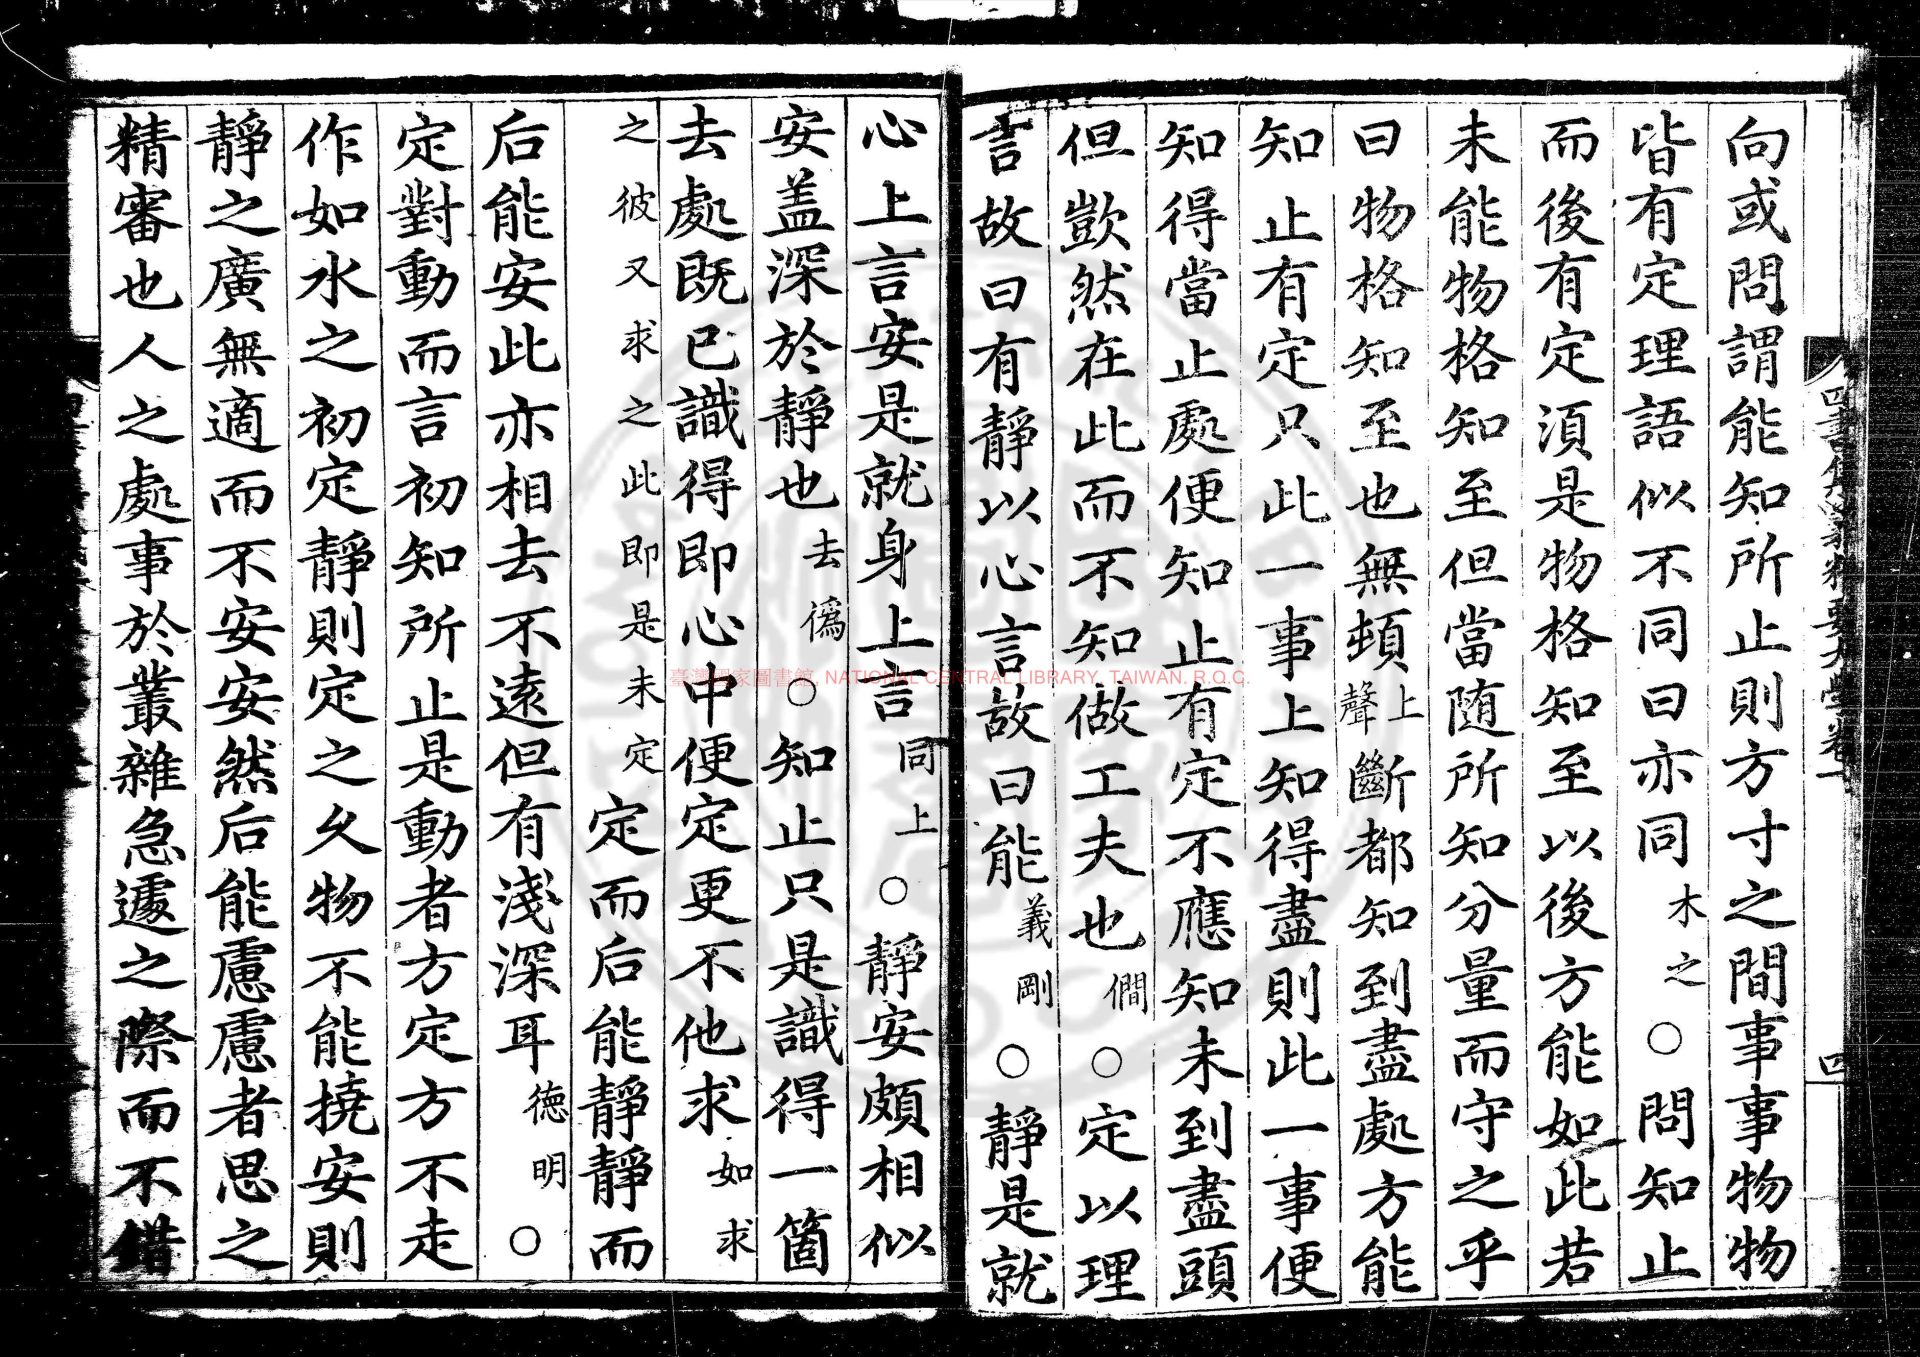 向或問謂能知所止則方寸之間事事物物
皆有定理語似不同曰亦同木之○問知止
而後有定須是物格知至以後方能如此若
未能物格知至但當随所知分量而守之乎
曰物格知至也無頓上聲斷都知到盡處方能
知止有定只此一事上知得盡則此一事便
知得當止處便知止有定不應知未到盡頭
但歝然在此而不知做工夫也僩○定以理
言故曰有靜以心言故曰能義剛○靜是就
心上言安是就身上言同上○靜安頗相似
安盖深於靜也去偽○知止只是識得一箇
去處既已識得即心中便定更不他求如求
之彼又求之此即是未定定而后能靜靜而
后能安此亦相去不遠但有淺深耳徳明○
定對動而言初知所止是動者方定方不走
作如水之初定靜則定之久物不能撓安則
靜之廣無適而不安安然后能慮慮者思之
精審也人之處事於叢雜急遽之際而不錯
四
臺灣國家圖書館, NATIONAL CENTRAL LIBRARY, TAIWAN. R.O.C.